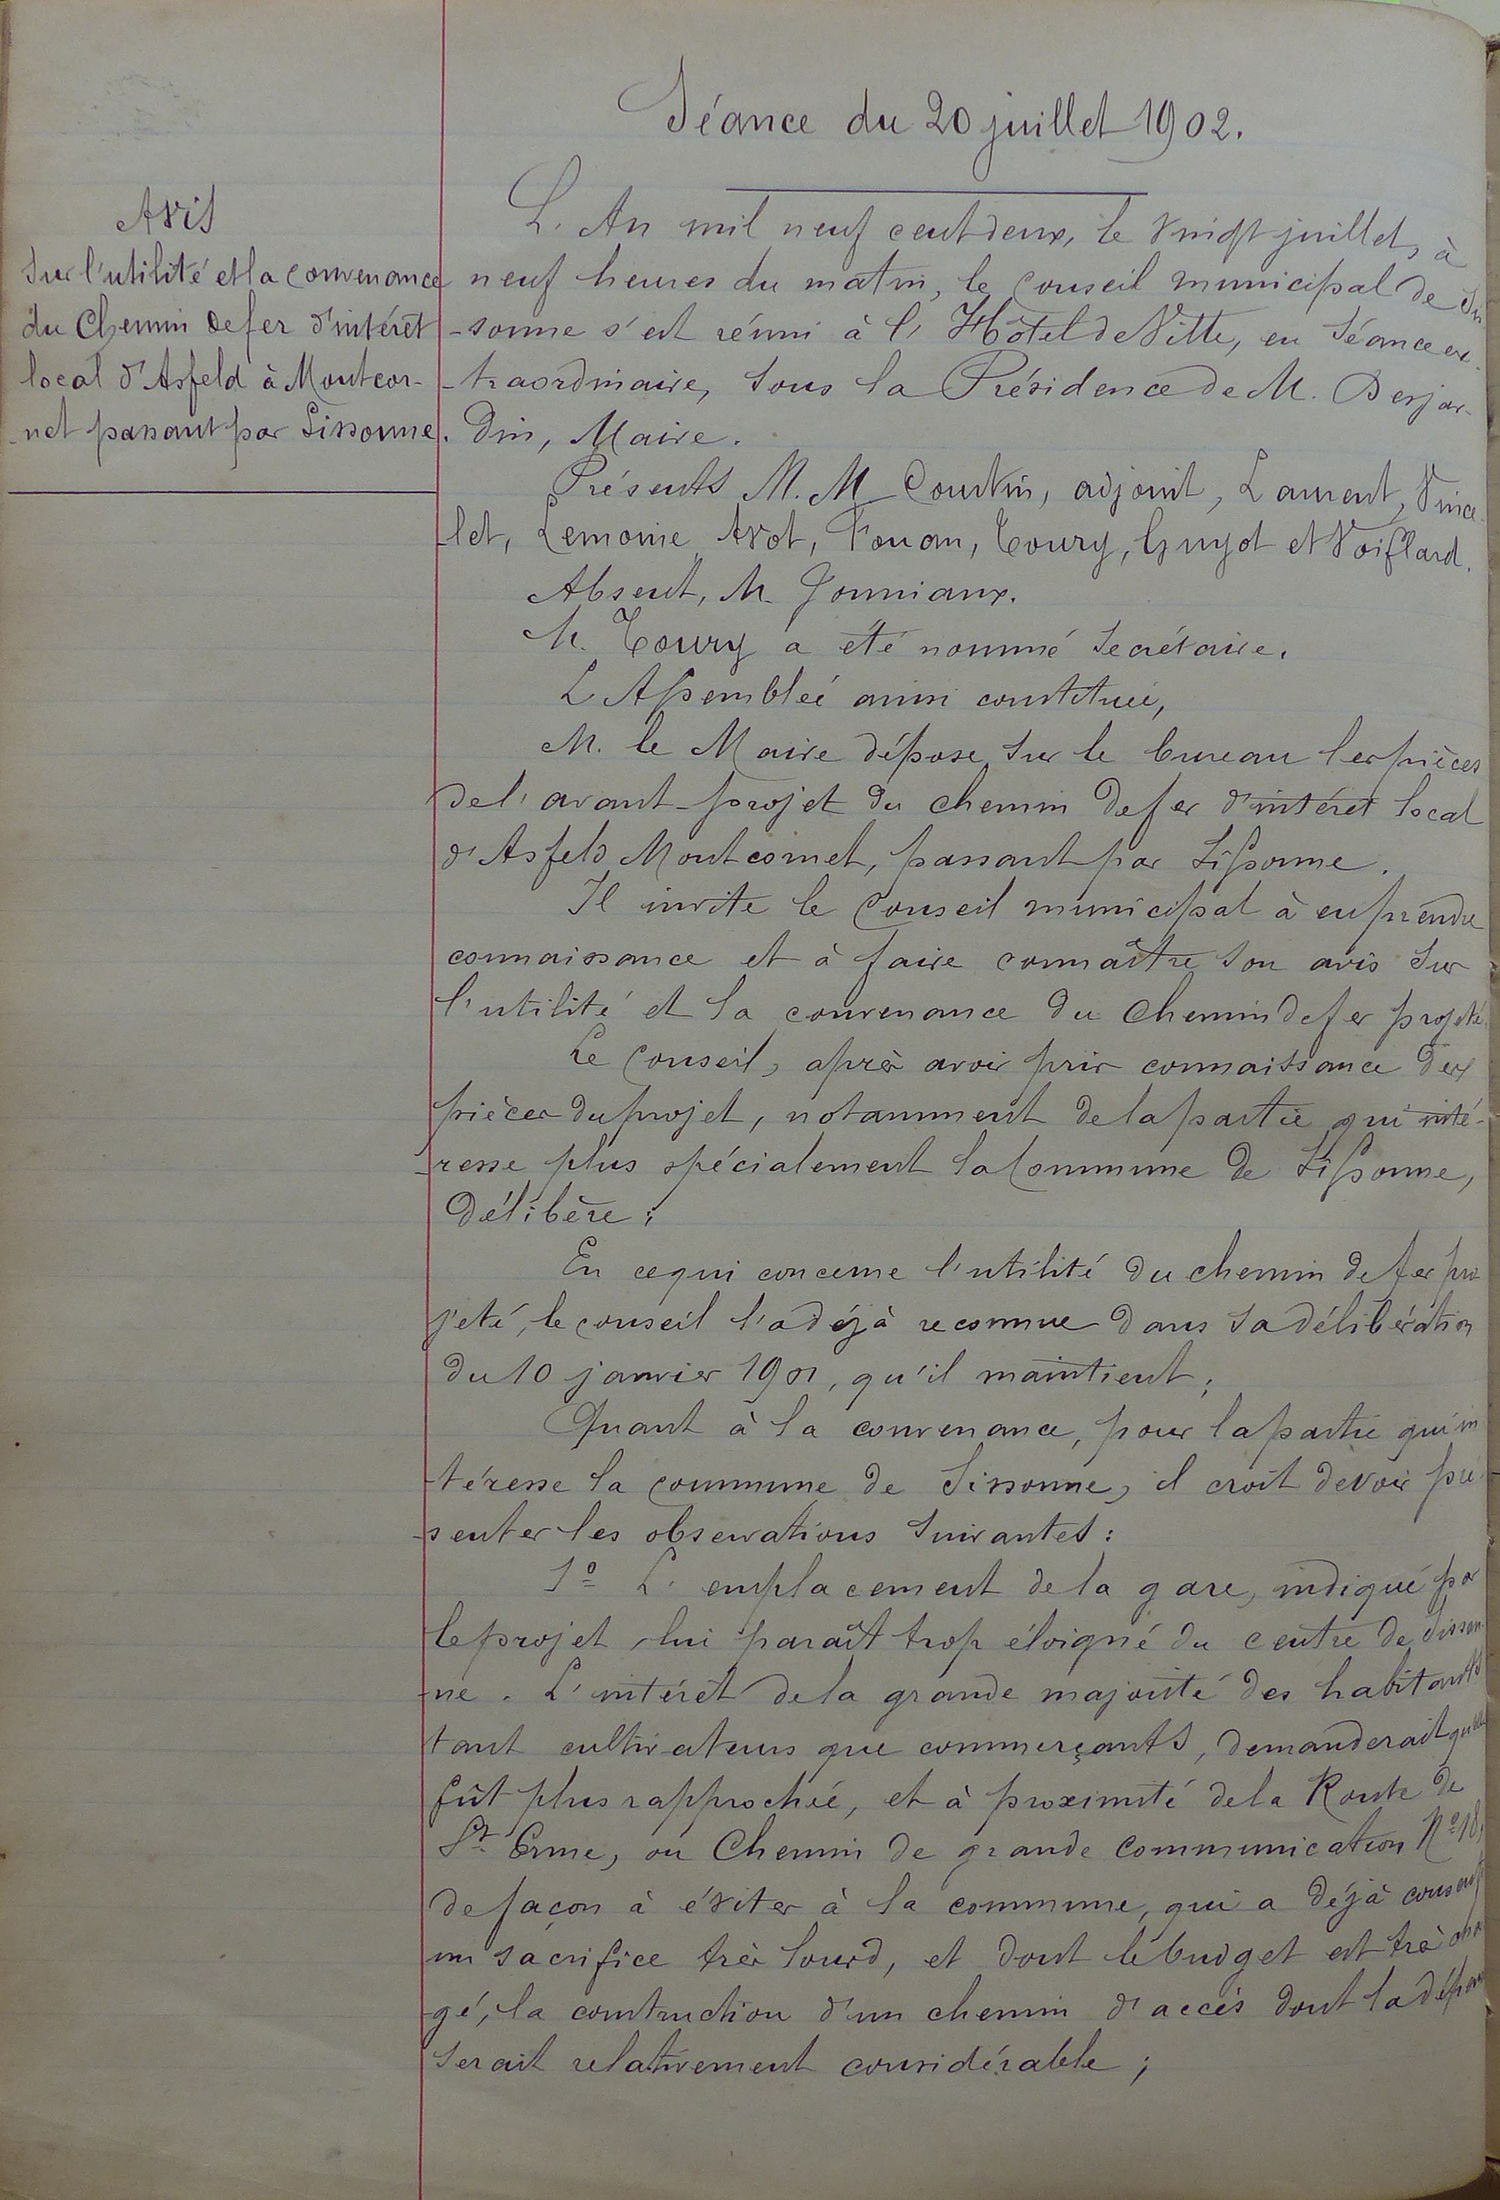 Séance du 20 juillet 1902.
Avis
sur l'utilité et la convenance
du Chemin de fer d'intérêt
local d'Asfeld à Montcor-
-net passant par Sissonne.
L'An mil neuf cent deux, le vingt juillet, à
neuf heures du matin, le Conseil municipal de Sis
-sonne s'est réuni à l'Hôtel de Ville, en Séance ex-
-traordinaire, sous la Présidence de M. Desjar-
din, Maire.
Présents M.M. Courtin, adjoint, Laurent, Vince-
-let, Lemoine Avot, Fouan, Toury, Guyot et Voiflard.
Absent, M. Jonniaux.
M. Toury a été nommé Secrétaire.
L'Assemblée ainsi constituée,
M. le Maire dépose sur le bureau les pièces
de l'avant-projet du chemin de fer d'intérêt local
d'Asfeld Montcornet, passant par Sissonne.
Il invite le Conseil municipal à en prendre
connaissance et à faire connaître son avis sur
l'utilité et la convenance du Chemin de fer projeté.
Le Conseil, après avoir pris connaissance des
pièces du projet, notamment de la partie qui inté-
-resse plus spécialement la Commune de Sissonne,
Délibère:
En ce qui concerne l'utilité du chemin de fer pro
jeté, le conseil l'a déjà reconnue dans sa délibération
du 10 janvier 1901, qu'il maintient;
Quant à la convenance, pour la partie qui in
-téresse la commune de Sissonne, il croit devoir pré
-senter les observations suivantes:
1º L'emplacement de la gare, indiqué par
le projet, lui paraît trop éloigné du centre de Sisson-
-ne. L'intérêt de la grande majorité des habitants
tant cultivateurs que commerçants, demanderait qu'elle
fût plus rapprochée, et à proximité de la Route de
St Erme, ou Chemin de grande communication Nº 18,
de façon à éviter à la commune, qui a déjà consenti
un sacrifice très lourd, et dont le budget est très char
gé, la construction d'un chemin d'accès dont la dépense
serait relativement considérable;